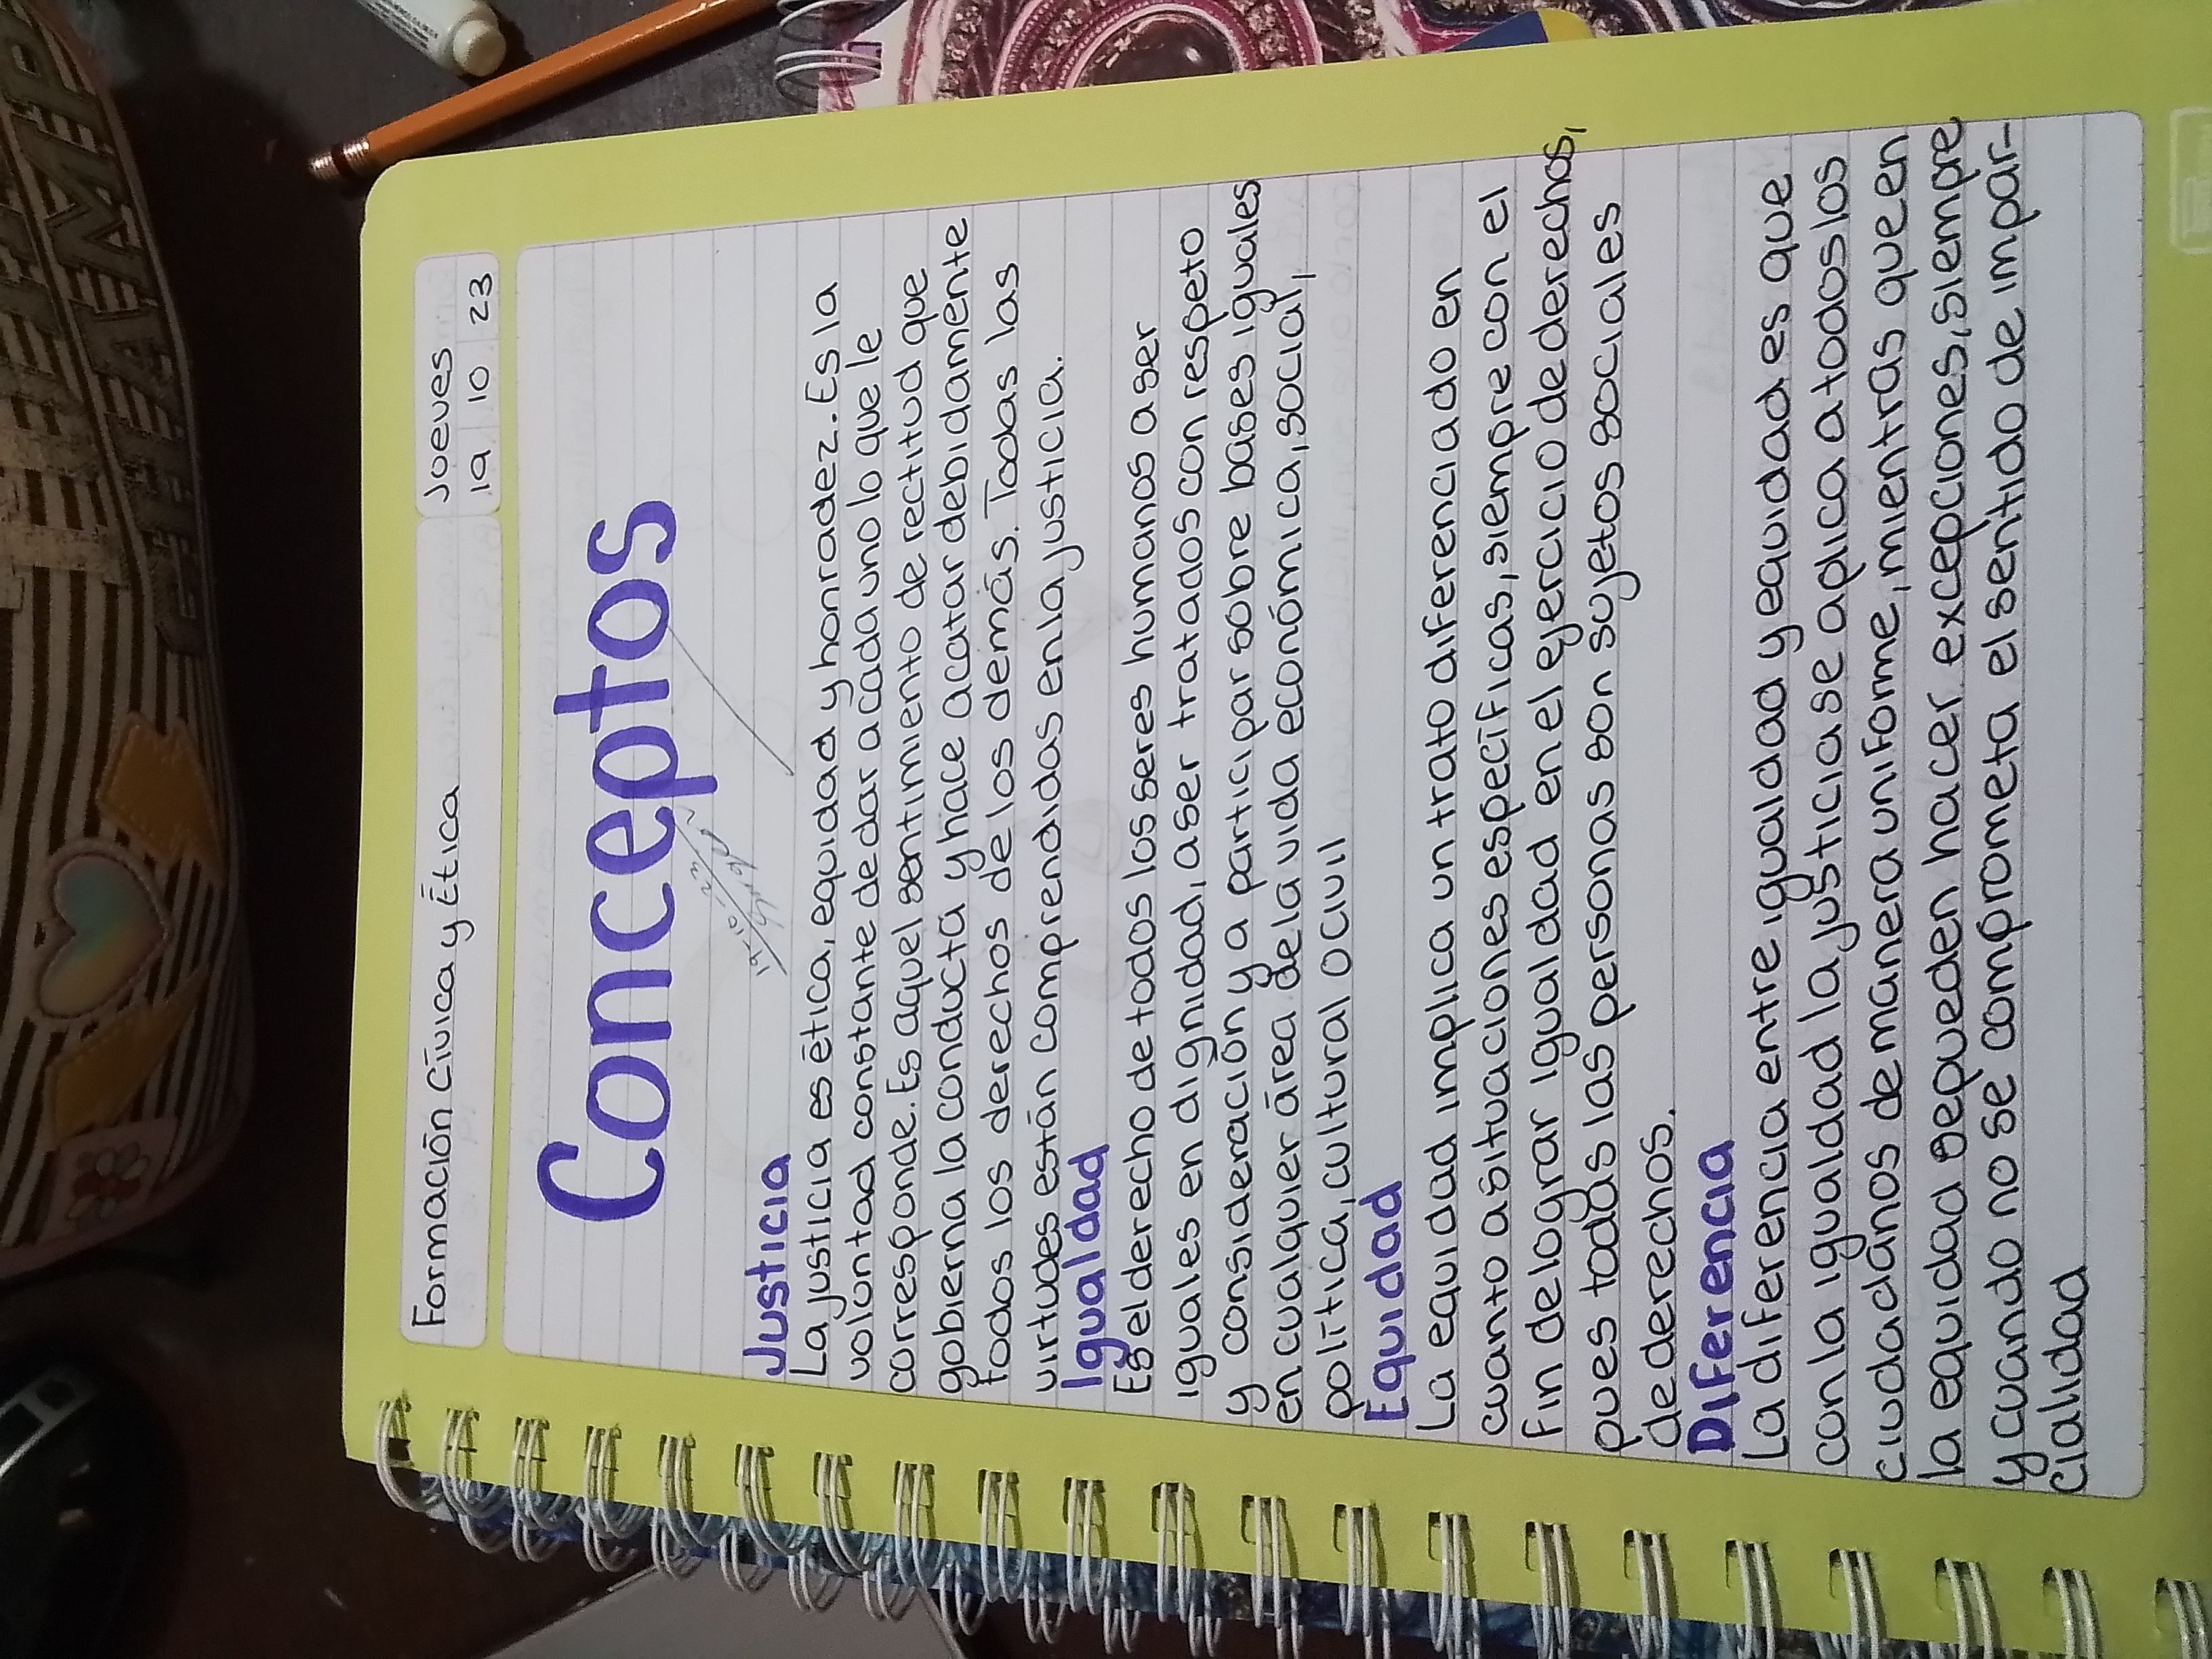 Formación Cívica y Ética
Joeves
19 10 23
Conceptos
19-10-23
Justicia
La justicia es ética, equidad y honradez. Es la
voluntad constante de dar a cada uno lo que le
corresponde. Es aquel sentimiento de rectitud que
gobierna la conducta y hace acatar debidamente
todos los derechos de los demás. Todas las
virtudes están comprendidas en la justicia.
Igualdad
Es el derecho de todos los seres humanos a ser
iguales en dignidad, a ser tratados con respeto
y consideración y a participar sobre bases iguales
en cualquier área de la vida económica, social,
política, cultural o civil
Equidad
La equidad implica un trato diferenciado en
cuanto a situaciones específicas, siempre con el
fin de lograr igualdad en el ejercicio de derechos,
pues todas las personas son sujetos sociales
de derechos.
Diferencia
La diferencia entre igualdad y equidad es que
con la igualdad la justicia se aplica a todos los
ciudadanos de manera uniforme, mientras que en
la equidad se pueden hacer excepciones, siempre
y cuando no se comprometa el sentido de impar-
cialidad